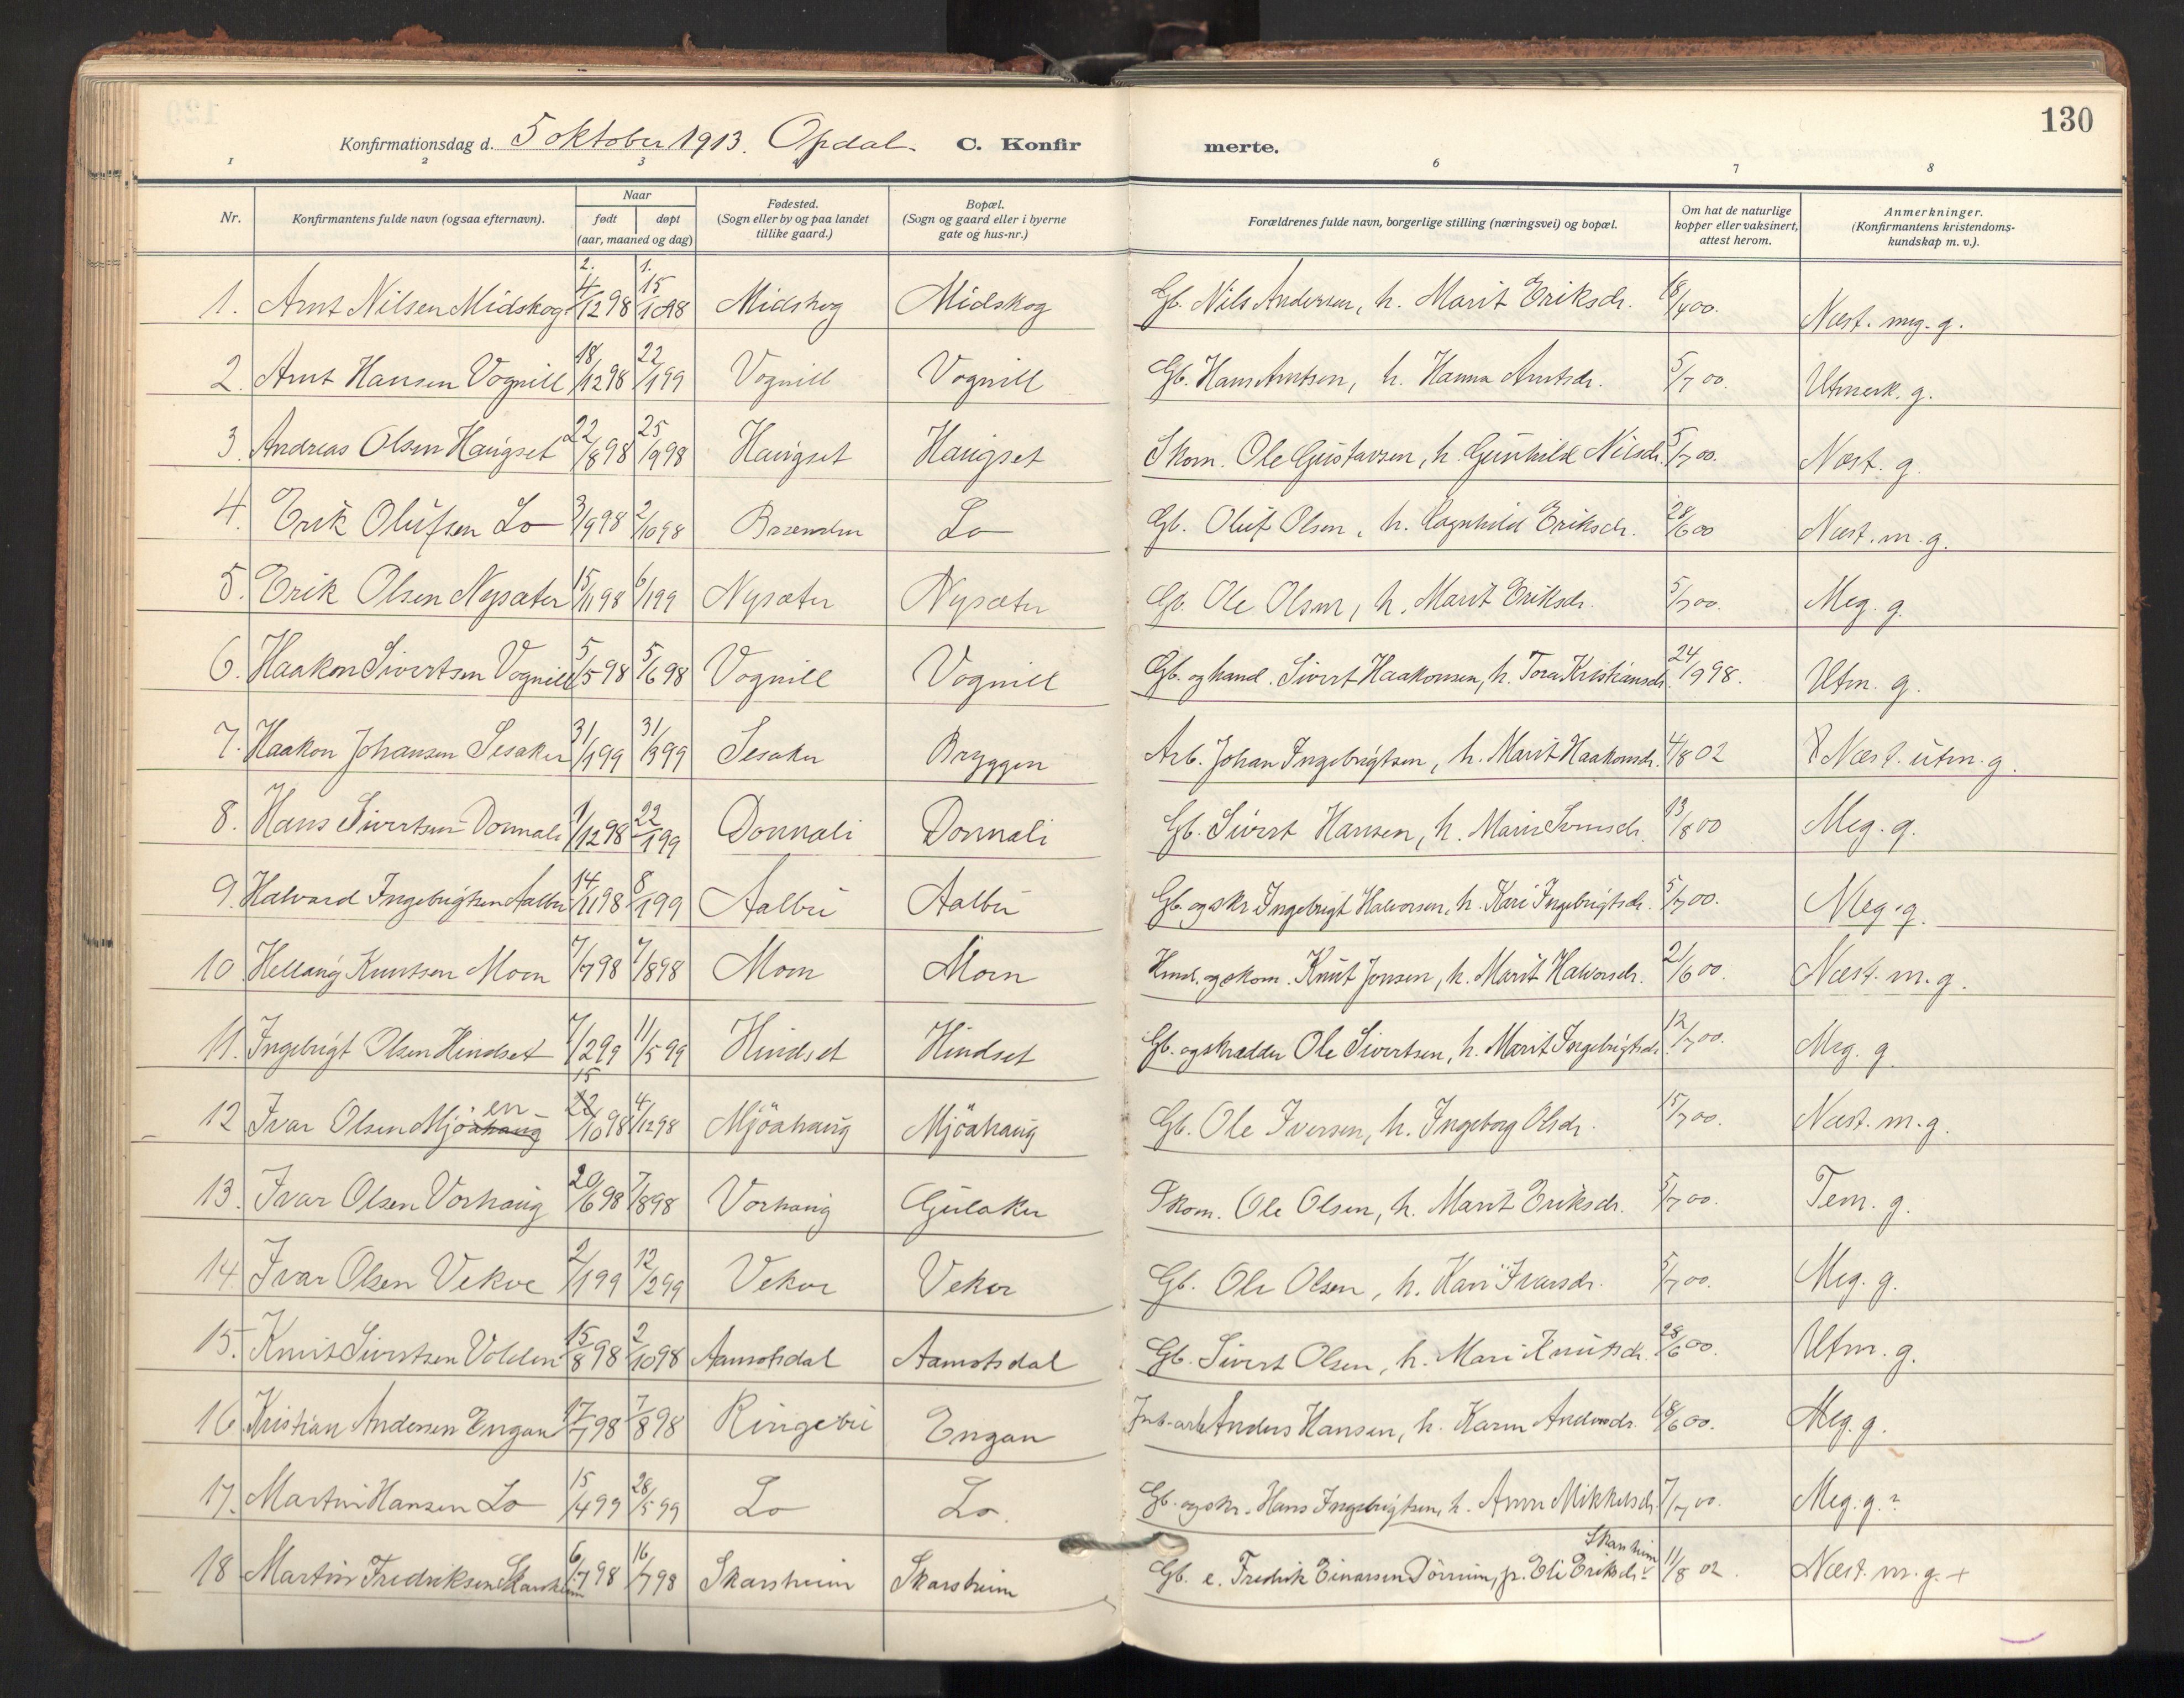 130
Konfirmationsdag d. 5 oktober 1913. Opdal. C. Konfirmerte.
1 2 3 6 7 8
Nr. Konfirmantens fulde navn (ogsaa efternavn). Naar født døpt (aar, maaned og dag) Fødested. (Sogn eller by og paa landet tillike gaard.) Bopæl. (Sogn og gaard eller i byerne gate og hus-nr.) Forældrenes fulde navn, borgerlige stilling (næringsvei) og bopæl. Om hat de naturlige kopper eller vaksinert, attest herom. Anmerkninger. (Konfirmantens kristendomskundskap m. v.).
2. 1.
1. Arnt Nilsen Midskog 4/12 98 15/10 98 Midskog Midskog Gb. Nils Andersen, h. Marit Eriksdr. 18/4 00. Næst. meg. g.
2. Arnt Hansen Vognill 18/12 98 22/1 99 Vognill Vognill Gb. Hans Arntsen, h. Hanna Arntsdr. 5/7 00. Utmerk. g.
3. Andreas Olsen Haugset 22/8 98 25/9 98 Haugset Haugset Skom. Ole Gustavsen, h. Gunhild Nilsdr. 5/7 00. Næst. g.
4. Erik Olufsen Lo 3/9 98 2/10 98 Lo Gb. Oluf Olsen, h. Ragnhild Eriksdr. 28/6 00 Næst. m. g.
5. Erik Olsen Nysæter 15/11 98 6/1 99 Nysæter Nysæter Gb. Ole Olsen, h. Marit Eriksdr. 5/7 00. Meg. g.
6. Haakon Sivertsen Vognill 5/5 98 5/6 98 Vognill Vognill Gb. og hand. Sivert Haakonsen, h. Tora Kristiansdr. 24/9 98. Utm. g.
7. Haakon Johansen Sesaker 31/1 99 31/3 99 Sesaker Bryggen Arb. Johan Ingebrigtsen, h. Marit Haakonsdr. 4/8 02 Næst. utm. g.
8. Hans Sivertsen Donnali 1/12 98 22/1 99 Donnali Donnali Gb. Sivert Hansen, h. Marie 13/8 00 Meg. g.
9. Halvard Ingebrigtsen Aalbu 14/11 98 8/1 99 Aalbu Aalbu Gb. og skr. Ingebrigt Halvorsen, h. Kari Ingebrigtsdr. 5/7 00. Meg. g.
10 Hellaug Knutsen Moen 7/7 98 7/8 98 Moen Moen Hmd. og skom. Knut Jonsen, h. Marit Halvorsdr. 21/6 00. Næst. m. g.
11. Ingebrigt Olsen Hindset 7/2 99 11/5 99 Hindset Hindset Gb. og skrædder Ole Sivertsen, h. Marit Ingebrigtsdr. 12/7 00. Meg. g
15 en
12 Ivar Olsen Mjöahaug 22/10 98 4/12 98 Mjöahaug Mjöahaug Gb. Ole Iversen, h. Ingeborg Olsdr. 15/7 00. Næst. m. g.
13. Ivar Olsen Vorhaug 20/6 98 7/8 98 Vorhaug Gulaker Skom. Ole Olsen, h. Marit Eriksdr. 5/7 00. Tem. g.
14. Ivar Olsen Vekve 2/1 99 12/2 99 Vekve Vekve Gb. Ole Olsen, h. Kari Ivarsdr. 5/7 00. Meg. g.
15. Knut Sivertsen Volden 15/8 98 2/10 98 Aamotsdal Aamotsdal Gb. Sivert Olsen, h. Mari Knutsdr. 28/6 00. Utm. g.
16 Kristian Andersen Engan 17/7 98 7/8 98 Ringebu Engan Anders Hansen, h. Karen Andersdr. 18/6 00. Meg. g.
17. Martin Hansen Lo 15/4 99 28/5 99 Lo Lo. Gb. og skr. Hans Ingebrigtsen, h. Anne Mikkelsdr. 7/7 00. Meg. g.?
Skarsheim
18 Martin Fredriksen Skarsheim 6/7 98 16/7 98 Skarsheim Skarsheim Gb. e. Fredrik Einarsen Dörrum, p. Eli Eriksdr. 11/8 02. Næst. m. g. +